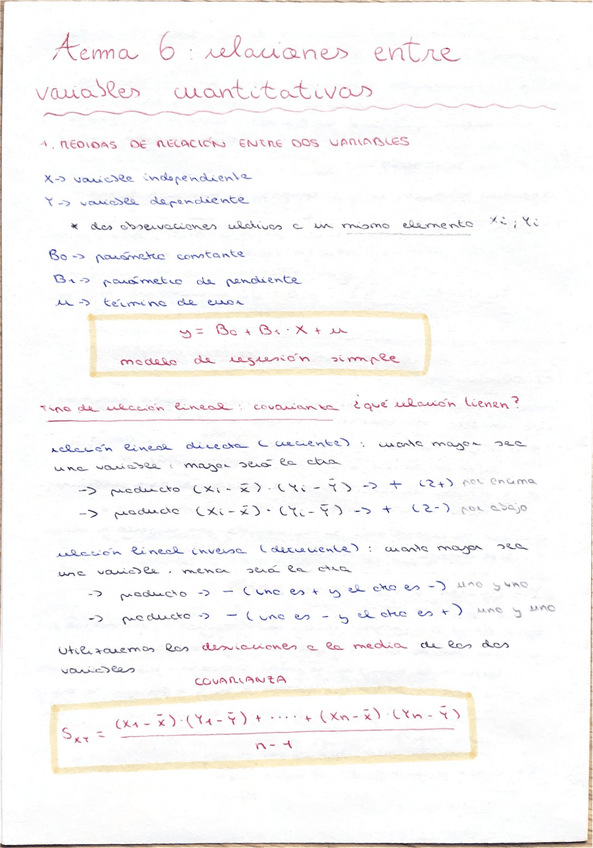 Tema 6: relaciones entre
variables cuantitativas
1. MEDIDAS DE RELACIÓN ENTRE DOS VARIABLES
X -> variable independiente
Y -> variable dependiente
* dos observaciones relativas a un mismo elemento Xi, Yi
B0 -> parámetro constante
B1 -> parámetro de pendiente
u -> término de error
y = B0 + B1 · X + u
modelo de regresión simple
Tipo de relación lineal: covarianza ¿qué relación tienen?
relación lineal directa (creciente): cuanto mayor sea
una variable, mayor será la otra
-> producto (Xi - x̄) · (Yi - Ȳ) -> + (2+) por encima
-> producto (Xi - x̄) · (Yi - Ȳ) -> + (2-) por abajo
relación lineal inversa (decreciente): cuanto mayor sea
una variable, menor será la otra
-> producto -> - (uno es + y el otro es -) uno y uno
-> producto -> - (uno es - y el otro es +) uno y uno
Utilizaremos las desviaciones a la media de las dos
variables
COVARIANZA
SXY = (X1 - x̄) · (Y1 - Ȳ) + ···· + (Xn - x̄) · (Yn - Ȳ)
n - 1